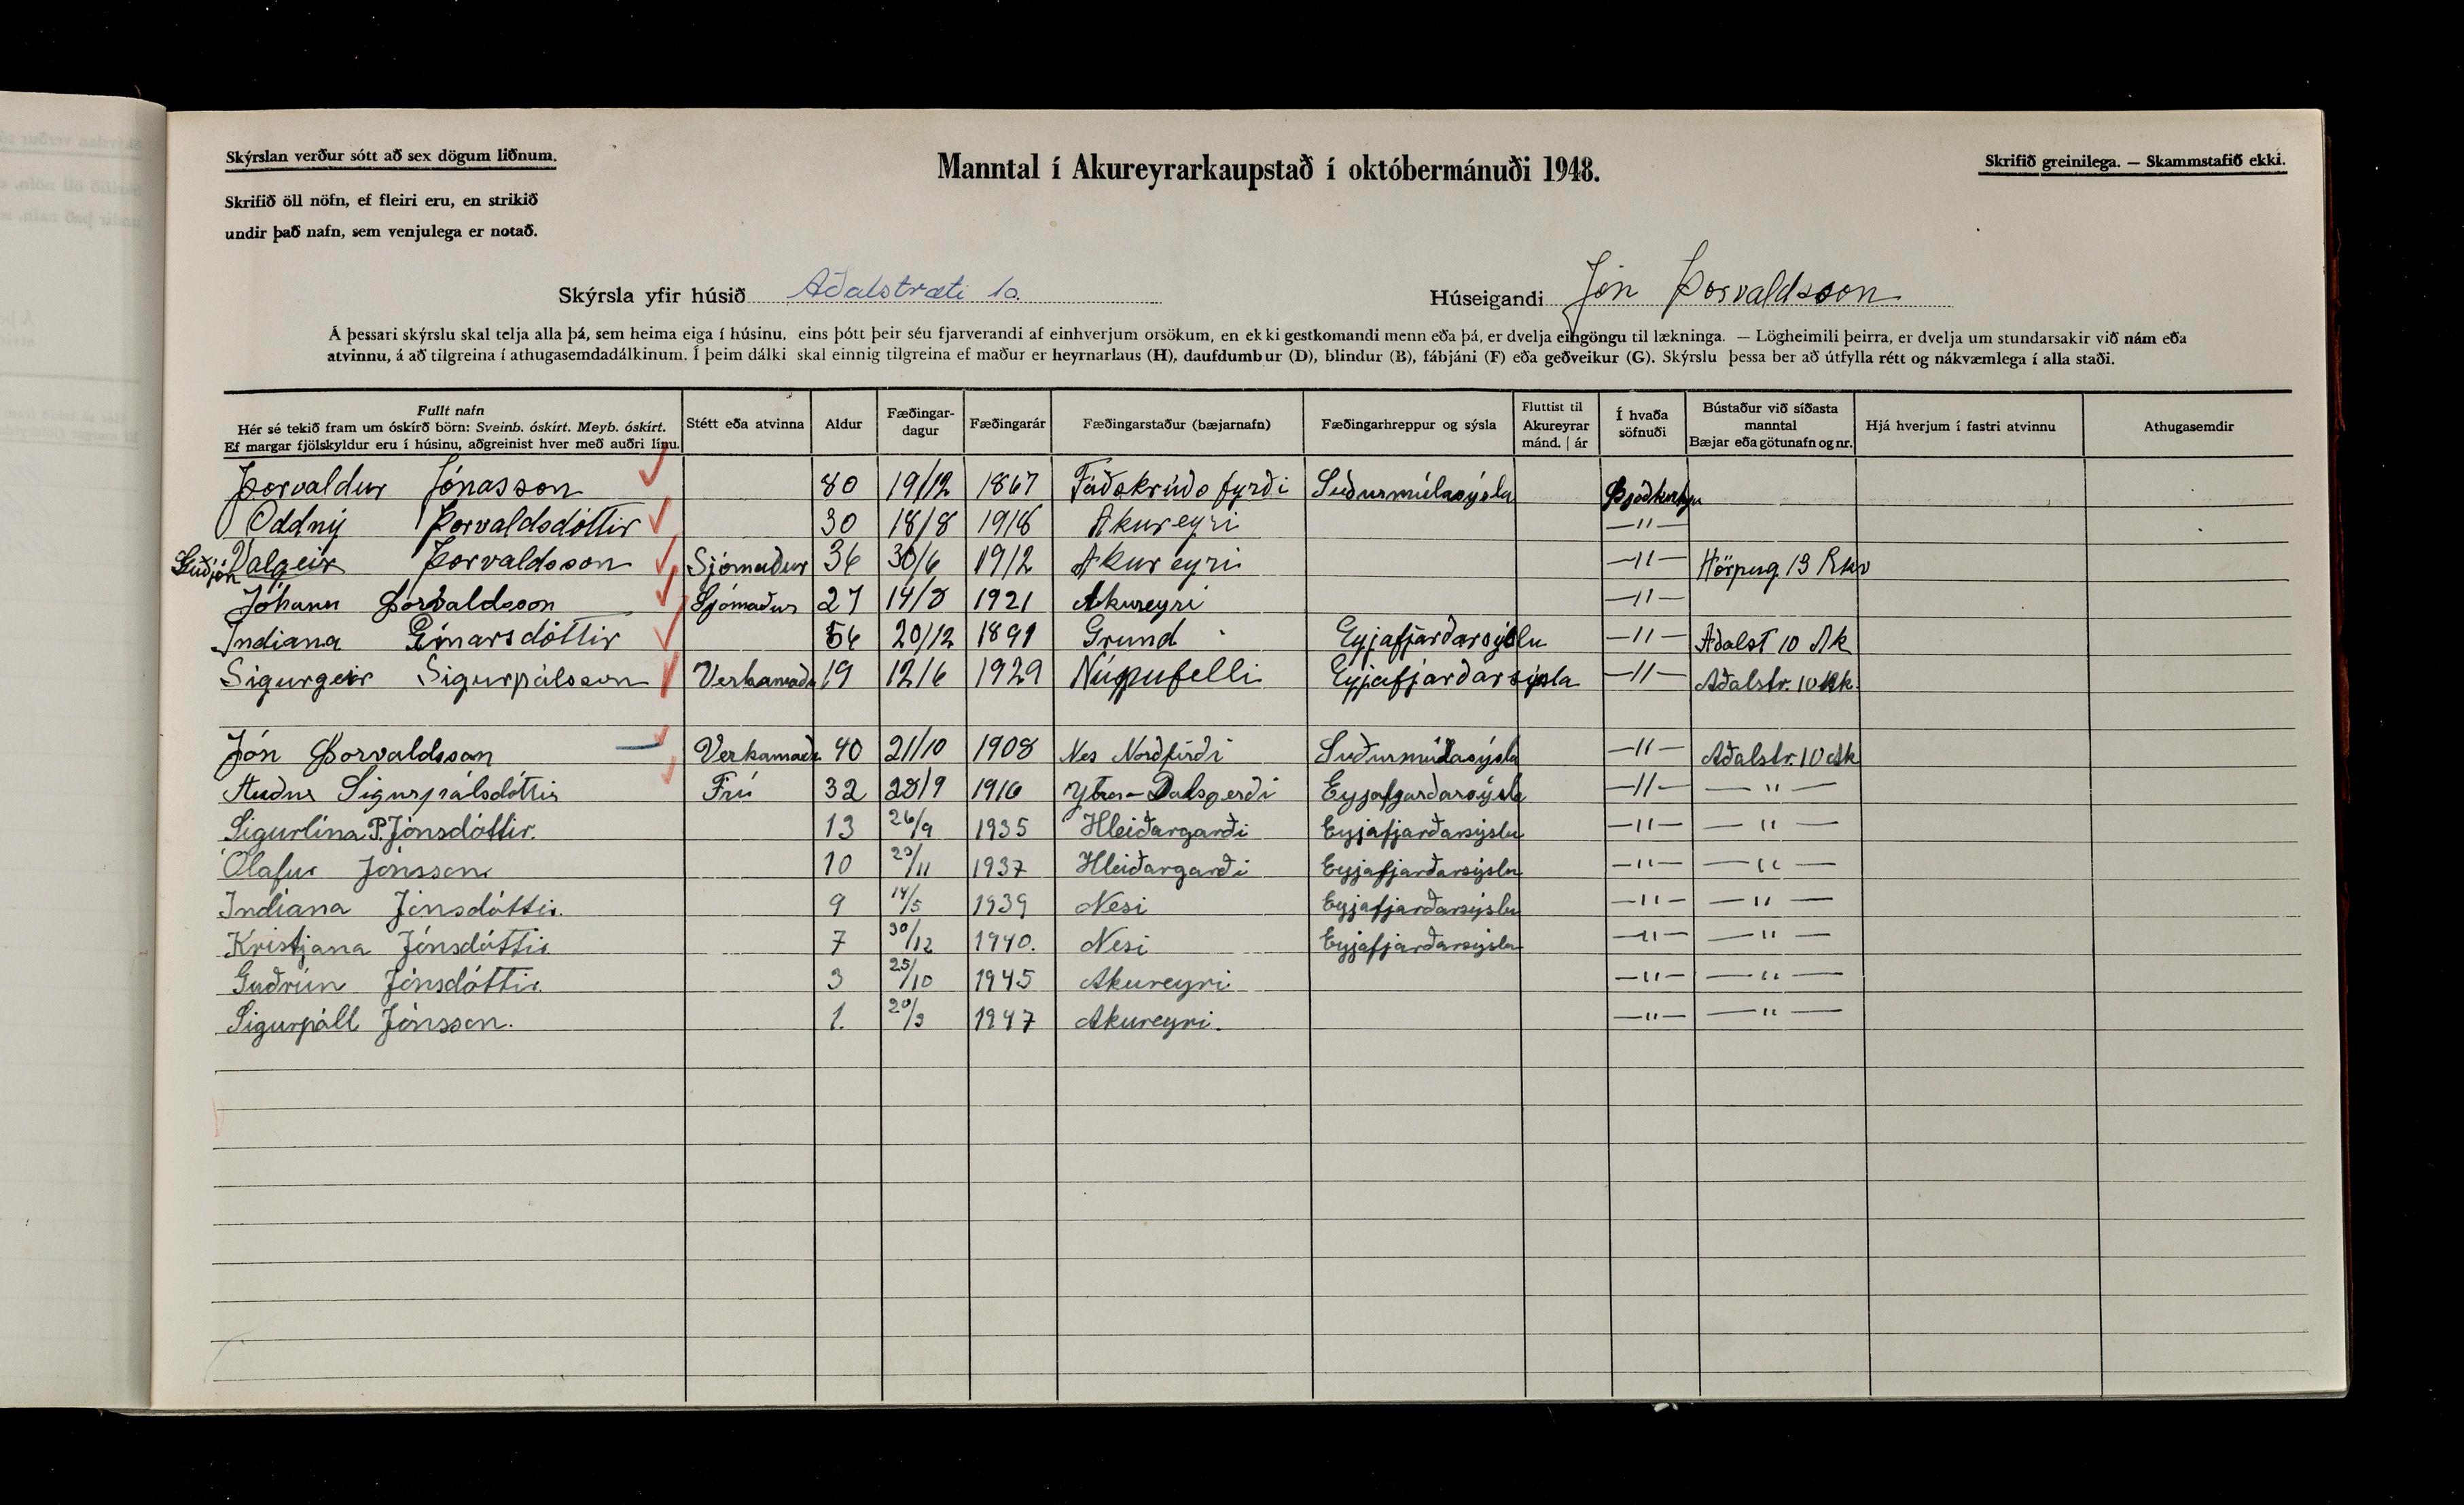 Skýrslan verður sótt að sex dögum liðnum.
Skrifið öll nöfn, ef fleiri eru, en strikið
undir það nafn, sem venjulega er notað.
Manntal í Akureyrarkaupstað í októbermánuði 1948.
Skrifið greinilega. — Skammstafið ekki.
Skýrsla yfir húsið Aðalstræti 10.
Húseigandi Jón Þorvaldsson
Á þessari skýrslu skal telja alla þá, sem heima eiga í húsinu, eins þótt þeir séu fjarverandi af einhverjum orsökum, en ekki gestkomandi menn eða þá, er dvelja eingöngu til lækninga. — Lögheimili þeirra, er dvelja um stundarsakir við nám eða
atvinnu, á að tilgreina í athugasemdadálkinum. Í þeim dálki skal einnig tilgreina ef maður er heyrnarlaus (H), daufdumbur (D), blindur (B), fábjáni (F) eða geðveikur (G). Skýrslu þessa ber að útfylla rétt og nákvæmlega í alla staði.
Fullt nafn
Hér sé tekið fram um óskírð börn: Sveinb. óskírt. Meyb. óskírt.
Ef margar fjölskyldur eru í húsinu, aðgreinist hver með auðri línu.
Stétt eða atvinna
Aldur
Fæðingar-
dagur
Fæðingarár
Fæðingarstaður (bæjarnafn)
Fæðingarhreppur og sýsla
Fluttist til
Akureyrar
mánd. | ár
Í hvaða
söfnuði
Bústaður við síðasta
manntal
Bæjar eða götunafn og nr.
Hjá hverjum í fastri atvinnu
Athugasemdir
Þorvaldur Jónasson 80 19/12 1867 Fáðskrúðsfyrði Suðurmúlasýsla
Oddný Þorvaldsdóttir 30 18/8 1918 Akureyri —"—
Guðjón Valgeir Þorvaldsson Sjómaður 36 30/6 1912 Akureyri —"— Hörpug. 13 Rkv
Jóhann Þorvaldsson Sjómaður 27 14/8 1921 Akureyri —"—
Indiana Einarsdóttir 56 20/12 1891 Grund Eyjafjarðarsýslu —"— Aðalst 10 Ak
Sigurgeir Sigurpálsson Verkamaðu 19 12/6 1929 Núpufelli Eyjafjarðarsýsla —"— Aðalstr. 10 Ak.
Jón Þorvaldsson Verkamaðu 40 21/10 1908 Nes Norðfirði Suðurmúlasýsla —"— Aðalstr. 10 Ak
Auður Sigurpálsdóttir Frú 32 28/9 1916 Ytra-Dalsgerði Eyjafjarðarsýsla —"— —"—
Sigurlína P. Jónsdóttir. 13 26/9 1935 Hleiðargarði Eyjafjarðarsýslu —"— —"—
Ólafur Jónsson 10 29/11 1937 Hleiðargarði Eyjafjarðarsýslu —"— —"—
Indiana Jónsdóttir. 9 14/5 1939 Nesi Eyjafjarðarsýslu —"— —"—
Kristjana Jónsdóttir 7 30/12 1940. Nesi Eyjafjarðarsýslu —"— —"—
Guðrún Jónsdóttir. 3 25/10 1945 Akureyri —"— —"—
Sigurpáll Jónsson. 1. 20/9 1947 Akureyri. —"— —"—